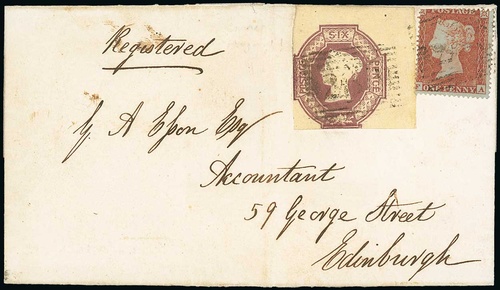 Registered
G A Esson Esq
Accountant
59 George Street
Edinburgh
SIX
PENCE
POSTAGE
ONE PENNY
A